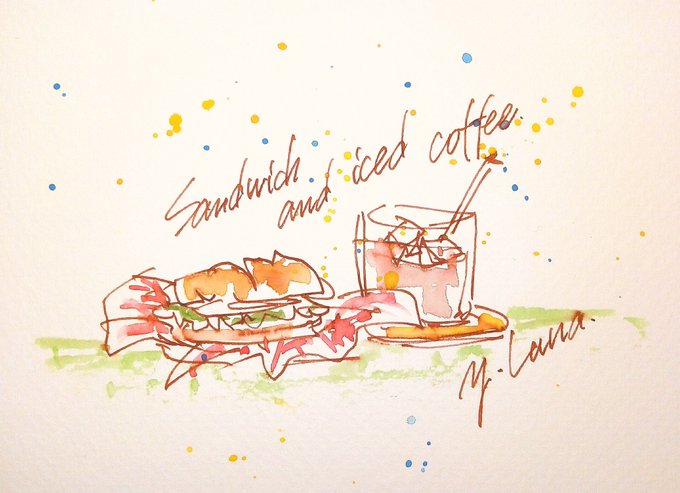 Sandwich
and iced coffee.
y. Lana.